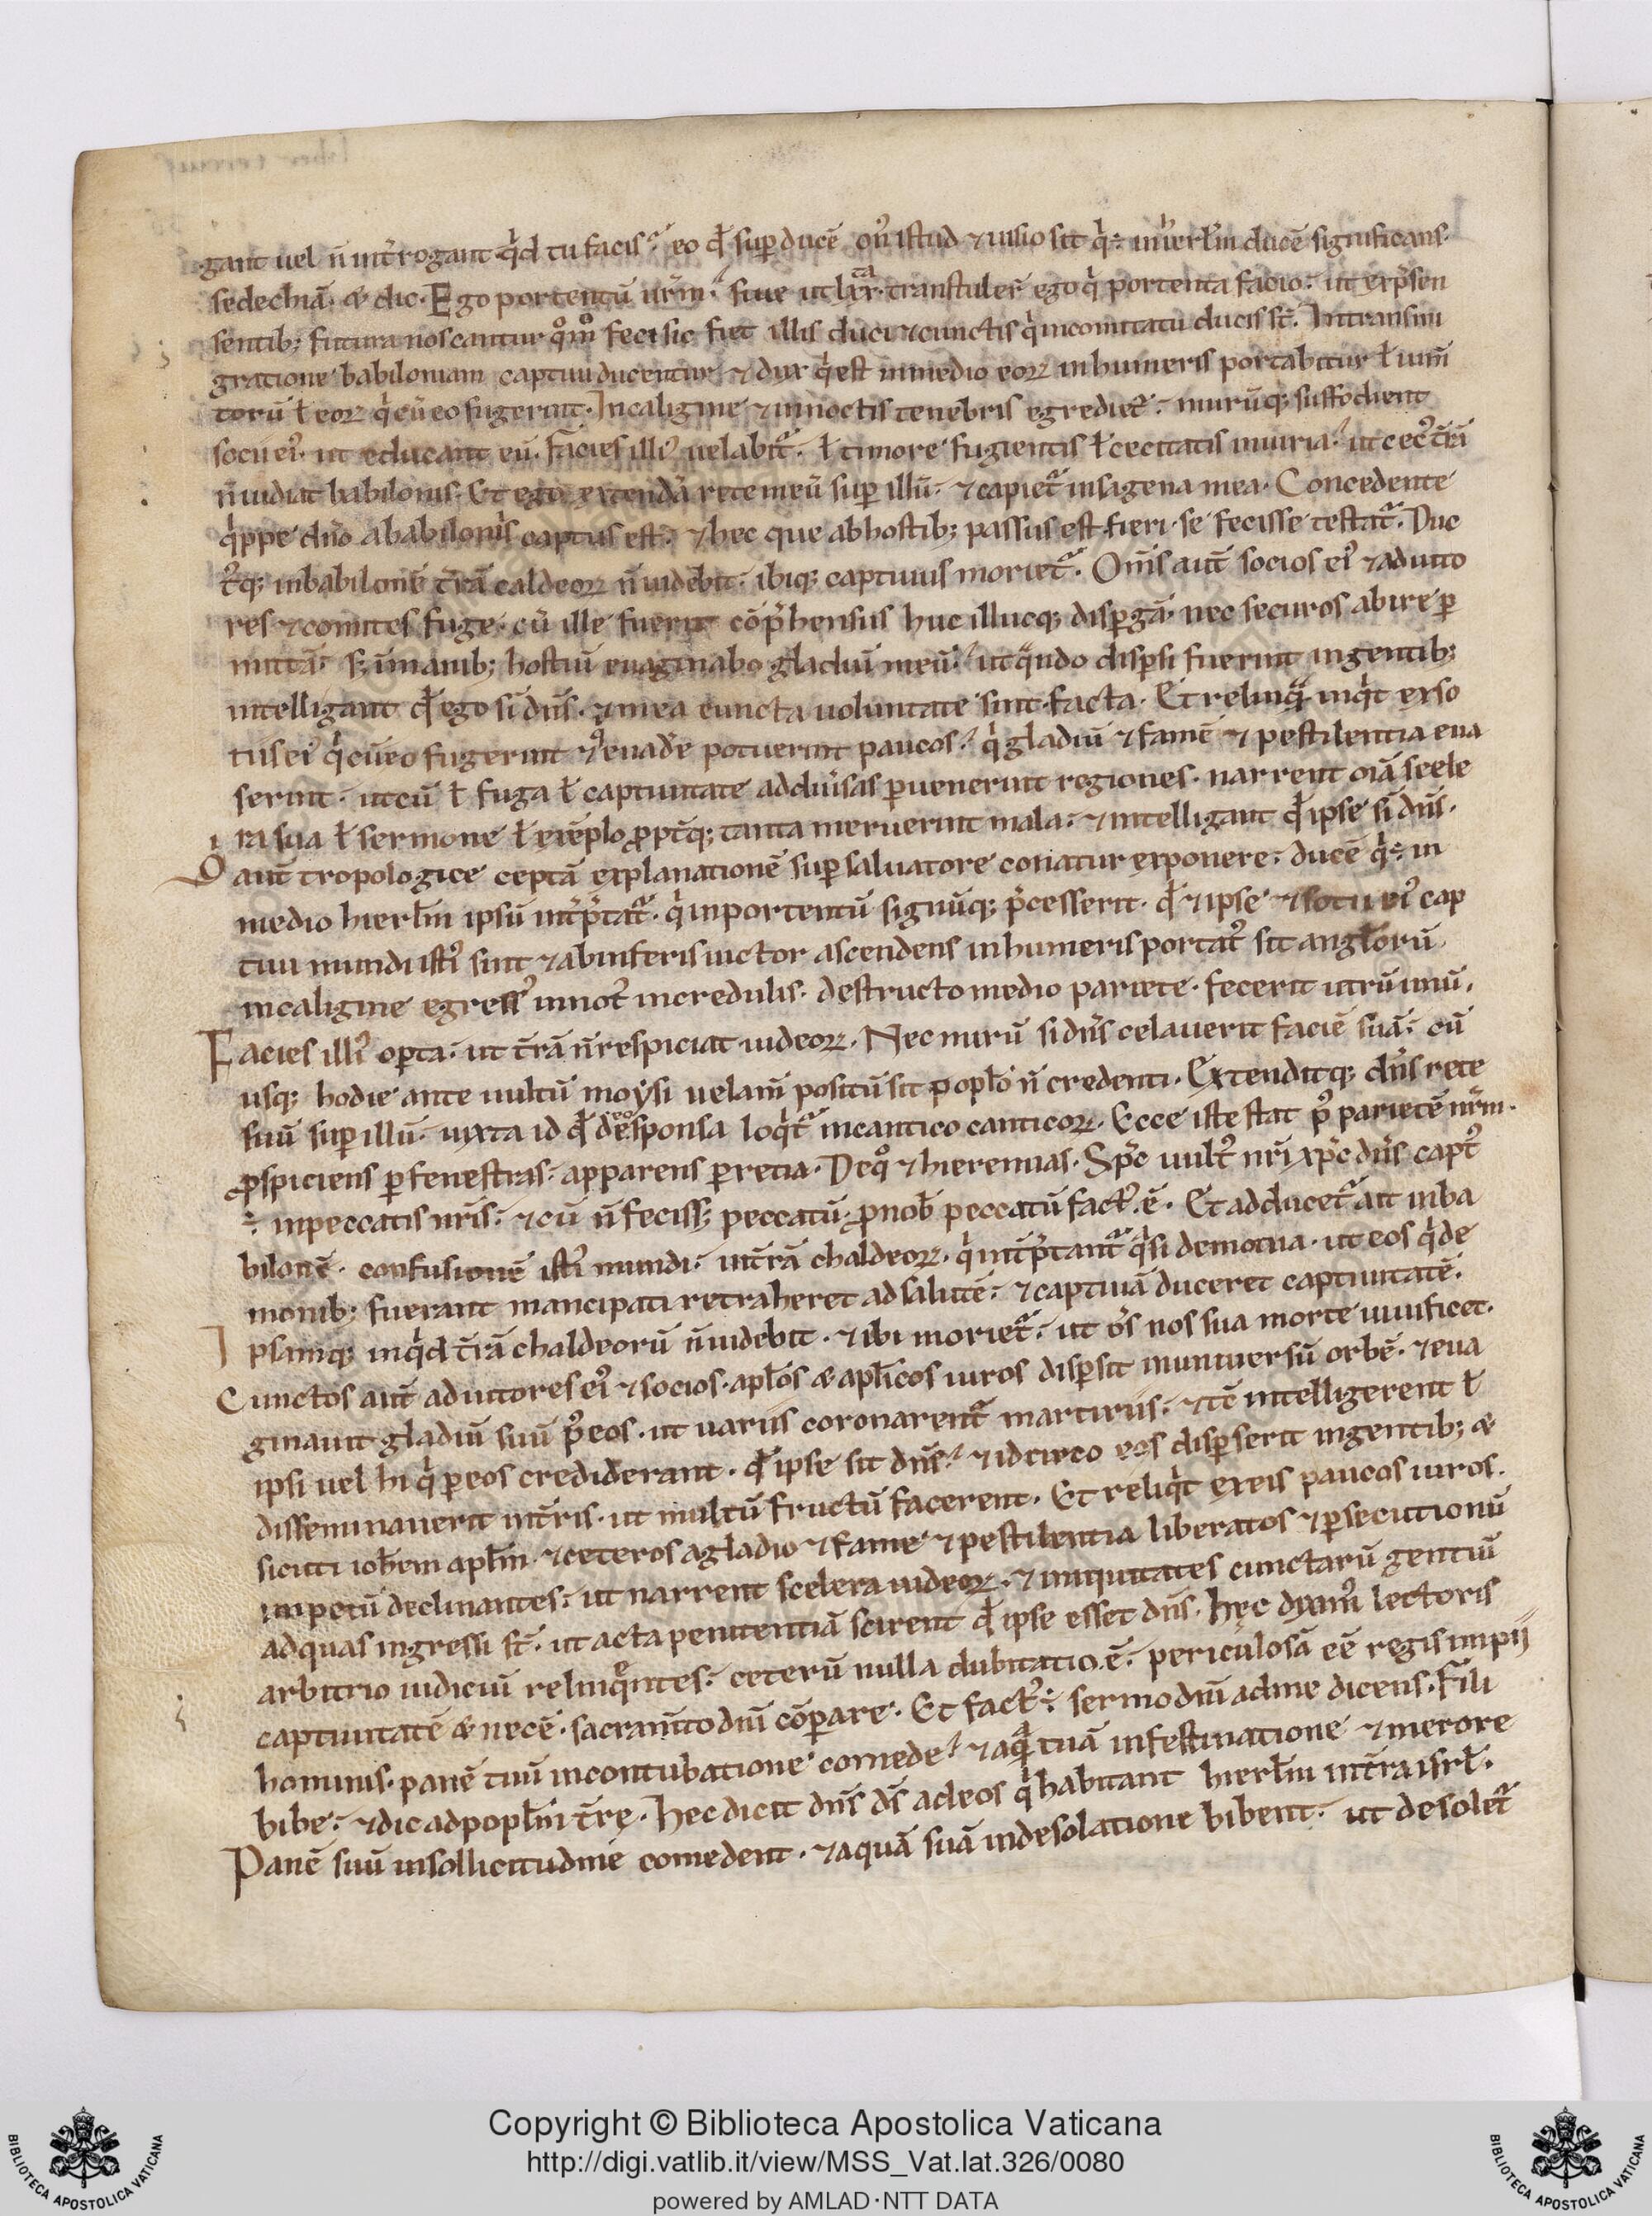 gant uel n̄ int̄rogant qͥd tu facis? eo qđ sup ducē on᷒ istud ⁊ uisio sit qͥ ÷ in ierłm ducē significans.
sedechiā. & dic. Ego portentū ur̄m. siue ut lxx^ta. transtuler̄ ego qͥ portenta facio. ut ex p̄sen
sentib; futura noscantur qͦmͦ feci sic fiet illis duci ⁊ cunctis qͥ in comitatu ducis st̄. In transmi
gratione babiloniam captiui ducentur ⁊ dux qͥ est in medio eoꝝ in humeris portabitur ł ium̄
torū ł eoꝝ qͥ cū eo fugerint. In caligine ⁊ in noctis tenebris egrediet᷒. murūq; suffodient
socii ei᷒. ut educant eū. Facies illi᷒ uelabit᷒. ł timore fugientis ł cecitatis iniuria. ut cec᷒ t̄rā
n̄ uideat babilonis. Et ego extendā rete meū sup illū. ⁊ capiet᷒ in sagena mea. Concedente
qͥppe dn̄o a babiloniis captus est. ⁊ hec que ab hostib; passus est fieri. se fecisse testat᷒. Duc
t᷒q; in babilonē t̄rā caldeoꝝ n̄ uidebit. ibiq; captiuus moriet᷒. Om̄s aut̄ socios ei᷒ ⁊ adiuto
res ⁊ comites fuge. cū ille fuerit cōp̄hensus huc illucq; disp̱gā. nec securos abire p̱
mittā. s; in manib; hostiū euaginabo gladiū meū. ut qᵃndo disp̱si fuerint in gentib;
intelligant qđ ego sī dn̄s. ⁊ mea cuncta uoluntate sint facta. Et relinqᵃ inqͥt ex so
tiis ei᷒ qͥ cū eo fugerint ⁊ euade̅ potuerint paucos. qͥ gladiū ⁊ famē ⁊ pestilentia eua
serint. ut cū ł fuga ł captiuitate ad diu̅sas p̱uenerint regiones. narrent oīa scele
ra sua ł sermone ł exēplo ꝓpt̄q; tanta meruerint mala. ⁊ intelligant qđ ipse sī dn̄s.
Qͥ aut̄ tropologice ceptā explanationē sup saluatore conatur exponere. ducē qͥ ÷ in
medio hierłm ipsū int̄p̄tat᷒. qͥ in portentū signūq; p̄cesserit. qđ ⁊ ipse ⁊ socii ei᷒ cap
tiui mundi isti᷒ sint ⁊ ab inferis uictor ascendens in humeris portat᷒ sit angłorū
in caligine egress᷒ innot᷒ incredulis. destructo medio pariete. fecerit utrūq unū.
Facies illi᷒ op̱ta. ut t̄rā n̄ respiciat iudeoꝝ. Nec mirū si dn̄s celauerit faciē suā. cū
usq; hodie ante uultū moysi uelam̄ positū sit popło n̄ credenti. Extenditq; dn̄s rete
suū sup illū. iuxta id qđ de eo sponsa loqͥt᷒ in cantico canticoꝝ. Ecce iste stat p᷒ parietē nr̄m.
ꝓspiciens p̱ fenestras. apparens p̱ retia. De qͦ ⁊ hieremias. Sp̄c uult᷒ nr̄i xp̄c dn̄s capt᷒
÷ in peccatis nr̄is. ⁊ cū n̄ feciss; peccatū. ꝓ nob̄ peccatū fact᷒ ē. Et adducet᷒ ait in ba
bilonē. confusionē isti᷒ mundi. in t̄rā chaldeoꝝ. qͥ int̄p̄tant᷒ qͣsi demonia. ut eos qͥ de
monib; fuerant mancipati retraheret ad salutē. ⁊ captiuā duceret captiuitatē.
Ipsamq; inqͥd t̄rā chaldeorū n̄ uidebit. ⁊ ibi moriet᷒. ut om̄s nos sua morte uiuificet.
Cunctos aut̄ adiutores ei᷒ ⁊ socios. apłos & apłicos uiros disp̱sit in uniuersū orbē. ⁊ eua
ginauit gladiū suū p᷒ eos. ut uariis coronarent᷒ martiriis. ⁊ tc̄ intelligerent ł
ipsi uel hi qͥ p̱ eos crediderant. qđ ipse sit dn̄s. ⁊ idcirco eos disp̱serit in gentib; &
disseminauerit in t̄ris. ut multū fructū facerent. Et reliqͥt ex eis paucos uiros.
sicuti ioh̄em apłm. ⁊ ceteros a gladio ⁊ fame ⁊ pestilentia liberatos ⁊ p̱secutionū
impetū declinantes. ut narrent scelera iudeoꝝ. ⁊ iniquitates cunctarū gentiū
ad quas ingressi st̄. ut acta penitentiā scirent qđ ipse esset dn̄s. Hęc dixim᷒ lectoris
arbitrio iudiciū relinqͥntes. ceterū nulla dubitatio ē. periculosā eē regis impii
captiuitatē & necē. sacram̄to dnī cōparare. Et fact᷒ ÷ sermo dnī ad me dicens. Fili
hominis. panē tuū in conturbatione comede. ⁊ aqᵃ tuā in festinatione ⁊ merore
bibe. ⁊ dic ad popłm t̄rę. Hec dicit dn̄s ds̄ ad eos qͥ habitant hierłm in t̄ra isrł.
Panē suū in sollicitudine comedent. ⁊ aquā suā in desolatione bibent. ut desolet᷒
Copyright © Biblioteca Apostolica Vaticana
http://digi.vatlib.it/view/MSS_Vat.lat.326/0080
powered by AMLAD·NTT DATA
BIBLIOTECA APOSTOLICA VATICANA
BIBLIOTECA APOSTOLICA VATICANA